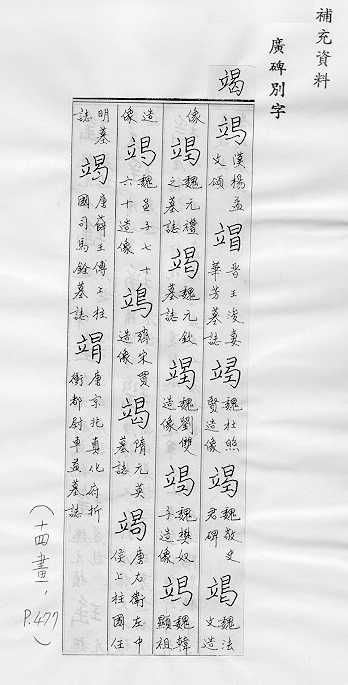 補充資料
廣碑別字
竭
竭漢楊孟文頌竭晉王浚妻華芳墓誌竭魏杜照賢造像竭魏敬史君碑竭魏法文造
像竭魏元禮之墓誌竭魏元欽墓誌竭魏劉雙造像竭魏樊奴子造像竭魏韓顯祖
造像竭魏孟子七十六十造像竭齊宋買造像竭隋元英墓誌竭唐右衛左中侯上柱國任
明墓誌竭唐薛王傅上柱國司馬銓墓誌竭唐京兆真化府折衝都尉車益墓誌
(十四畫，P.477)